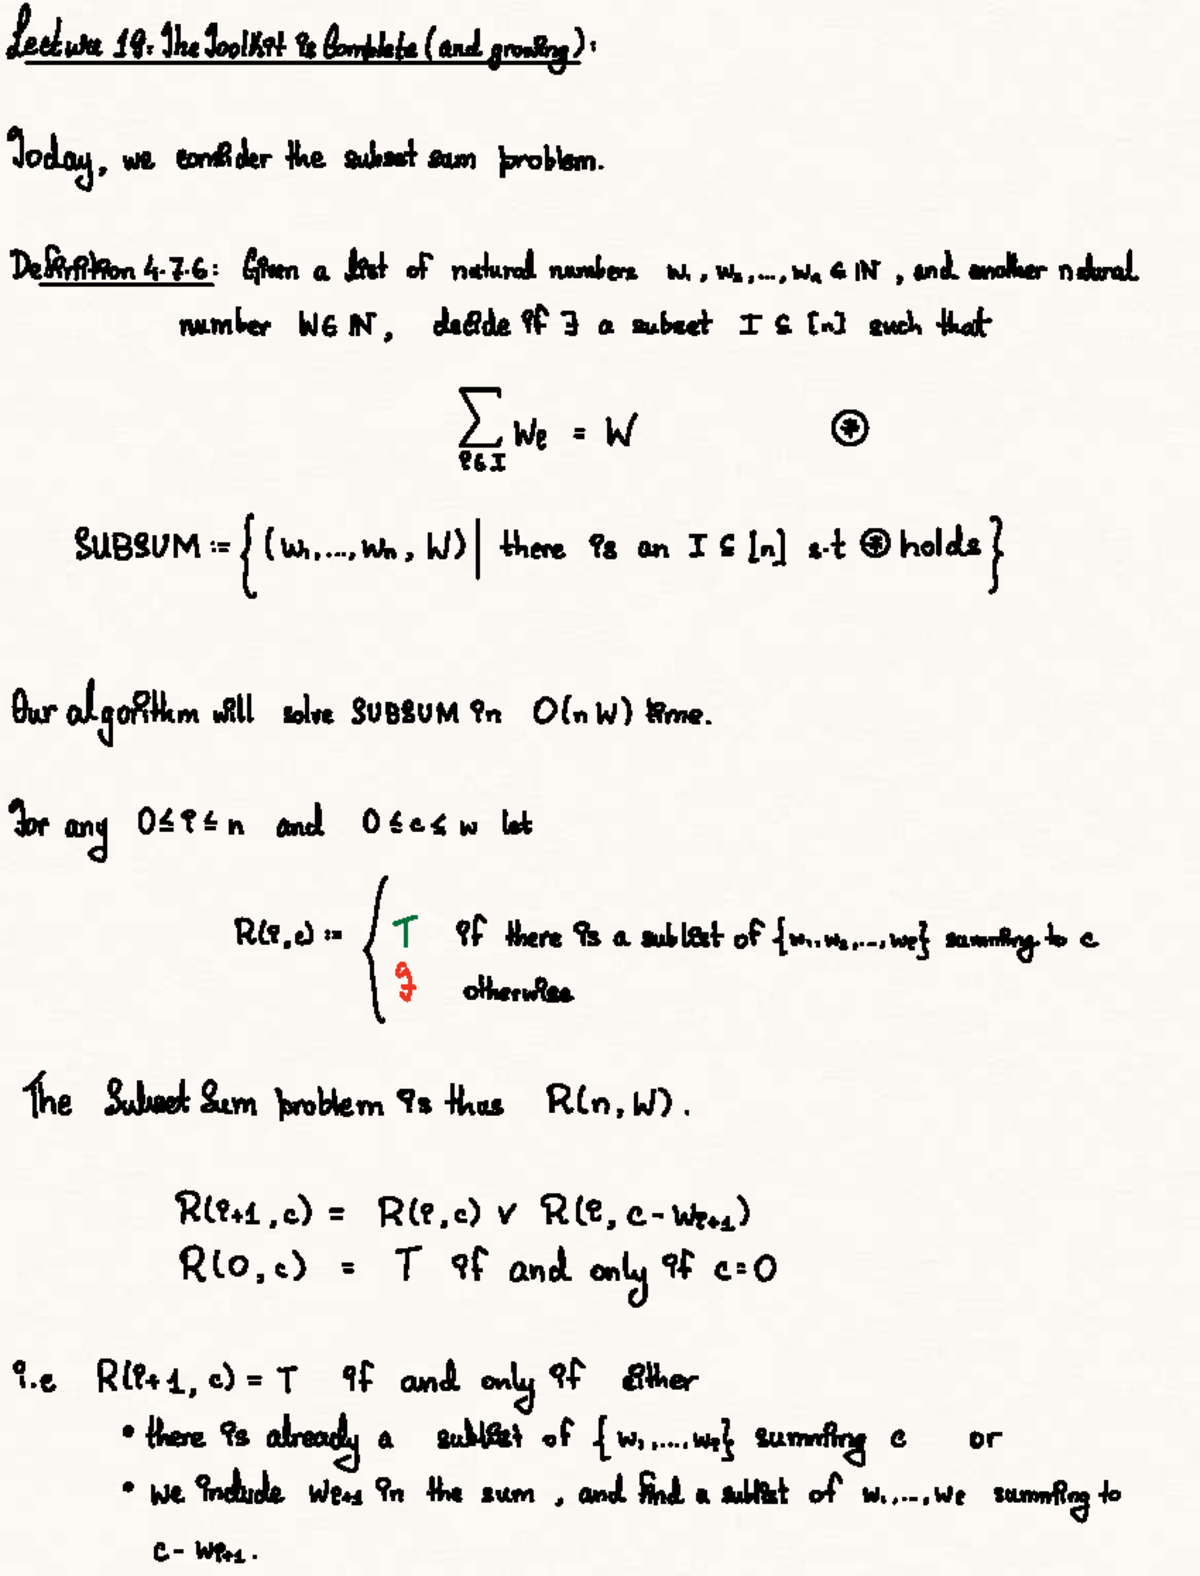 Lecture 19: The Toolkit is Complete (and growing):
Today, we consider the subset sum problem.
Definition 4.7.6: Given a list of natural numbers w₁, w₂, ..., wₙ ∈ ℕ, and another natural
number W ∈ ℕ, decide if ∃ a subset I ⊆ [n] such that
∑_{i∈I} wᵢ = W ⊛
SUBSUM := {(w₁, ..., wₙ, W) | there is an I ⊆ [n] s.t ⊛ holds}
Our algorithm will solve SUBSUM in O(nW) time.
For any 0 ≤ i ≤ n and 0 ≤ c ≤ w let
R(i, c) := { T if there is a sublist of {w₁, w₂, ..., wᵢ} summing to c
F otherwise
The Subset Sum problem is thus R(n, W).
R(i+1, c) = R(i, c) ∨ R(i, c - wᵢ₊₁)
R(0, c) = T if and only if c = 0
i.e R(i+1, c) = T if and only if either
• there is already a sublist of {w₁, ..., wᵢ} summing c or
• we include wᵢ₊₁ in the sum, and find a sublist of w₁, ..., wᵢ summing to
c - wᵢ₊₁.